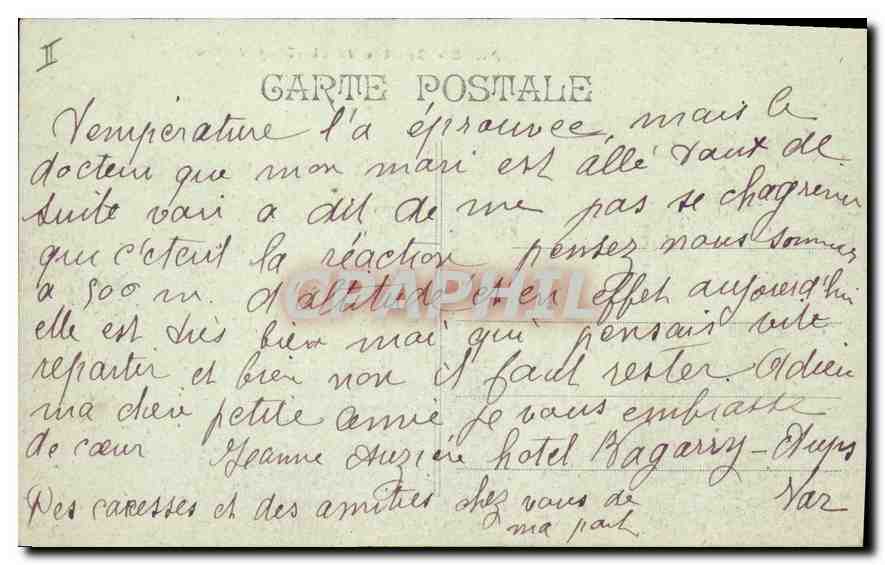 II
CARTE POSTALE
Température l'a éprouvée, mais le
docteur que mon mari est allé tout de
suite voir a dit de me pas se chagriner
que c'était la réaction pensez nous sommes
a 500 m. d'altitude et en effet aujourd'hui
elle est très bien moi qui pensais vite
repartir et bien non il faut rester. Adieu
ma chère petite amie je vous embrasse
de cœur Jeanne Auzière hotel Bagarry - Aups
Var
Des caresses et des amitiés chez vous de
ma part
CPAPHIL